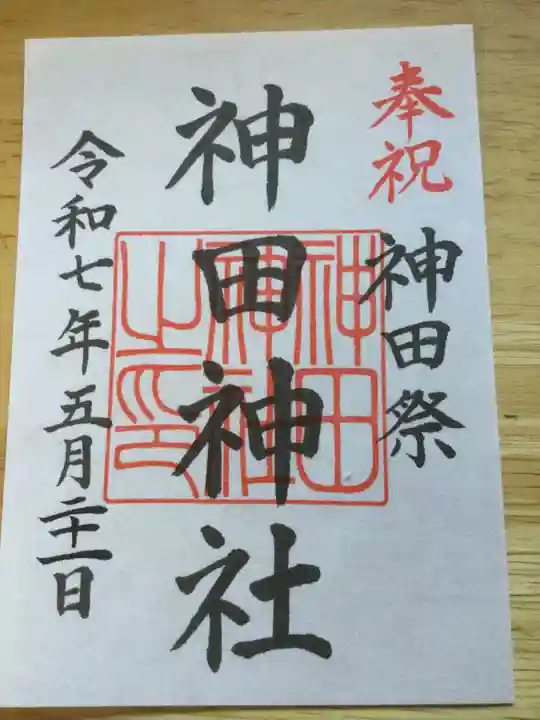 奉祝
神田祭
神田神社
神田
神社
之印
令和七年五月二十一日